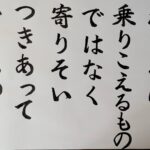 乗りこえるもの
ではなく
寄りそい
つきあって